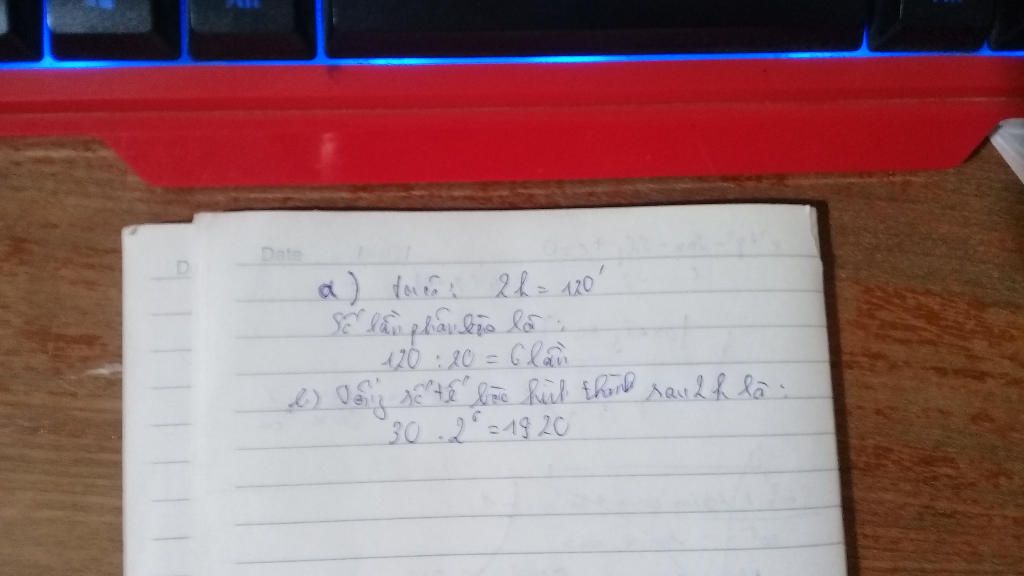 Date
a) ta có: 2h = 120'
Số lần phân bào là:
120 : 20 = 6 lần
b) Tổng số tế bào hình thành sau 2h là:
30 . 2⁶ = 1920